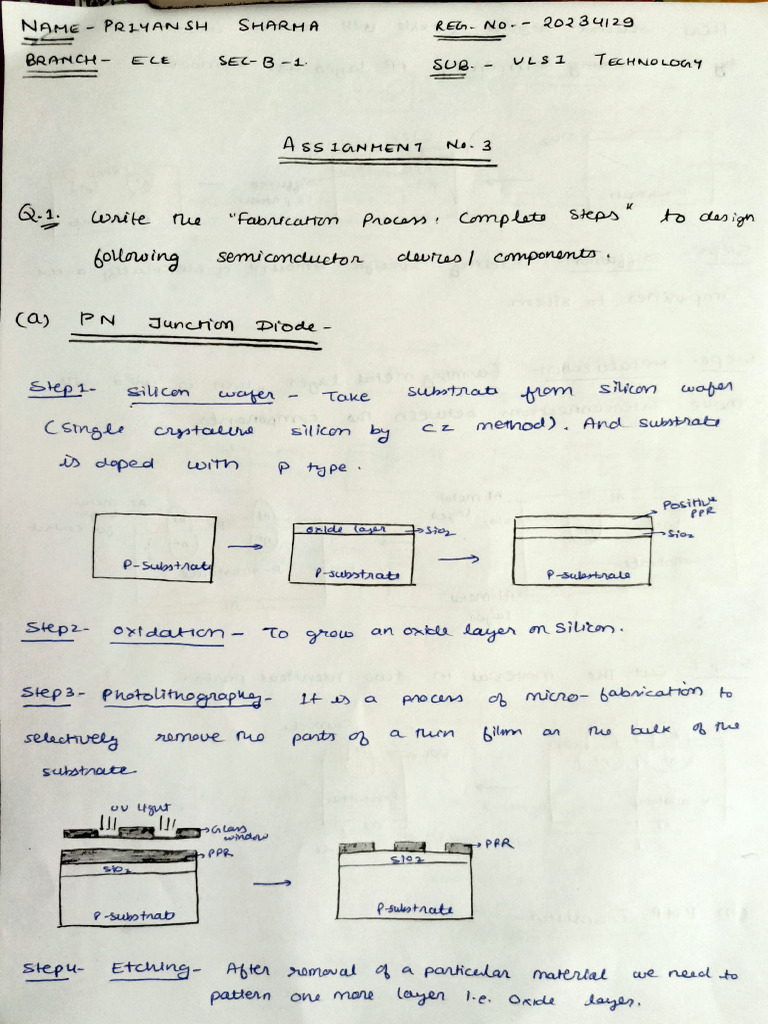 NAME - PRIYANSH SHARMA REG. NO. - 20234129
BRANCH - ECE SEC-B-1. SUB. - VLSI TECHNOLOGY
ASSIGNMENT No. 3
Q.1. Write the "Fabrication Process: Complete Steps" to design
following semiconductor devices/ components.
(a) PN Junction Diode -
Step1- Silicon wafer - Take substrate from silicon wafer
(single crystalline silicon by CZ method). And substrate
is doped with P type.
P-substrate
oxide layer
SiO2
P-substrate
Positive
PPR
SiO2
P-substrate
Step2- Oxidation - To grow an oxide layer on Silicon.
Step3- Photolithography - It is a process of micro-fabrication to
selectively remove the parts of a thin film or the bulk of the
substrate
UV light
Glass
window
PPR
SiO2
P-substrate
PPR
SiO2
P-substrate
Step4- Etching - After removal of a particular material we need to
pattern one more layer i.e. oxide layer.